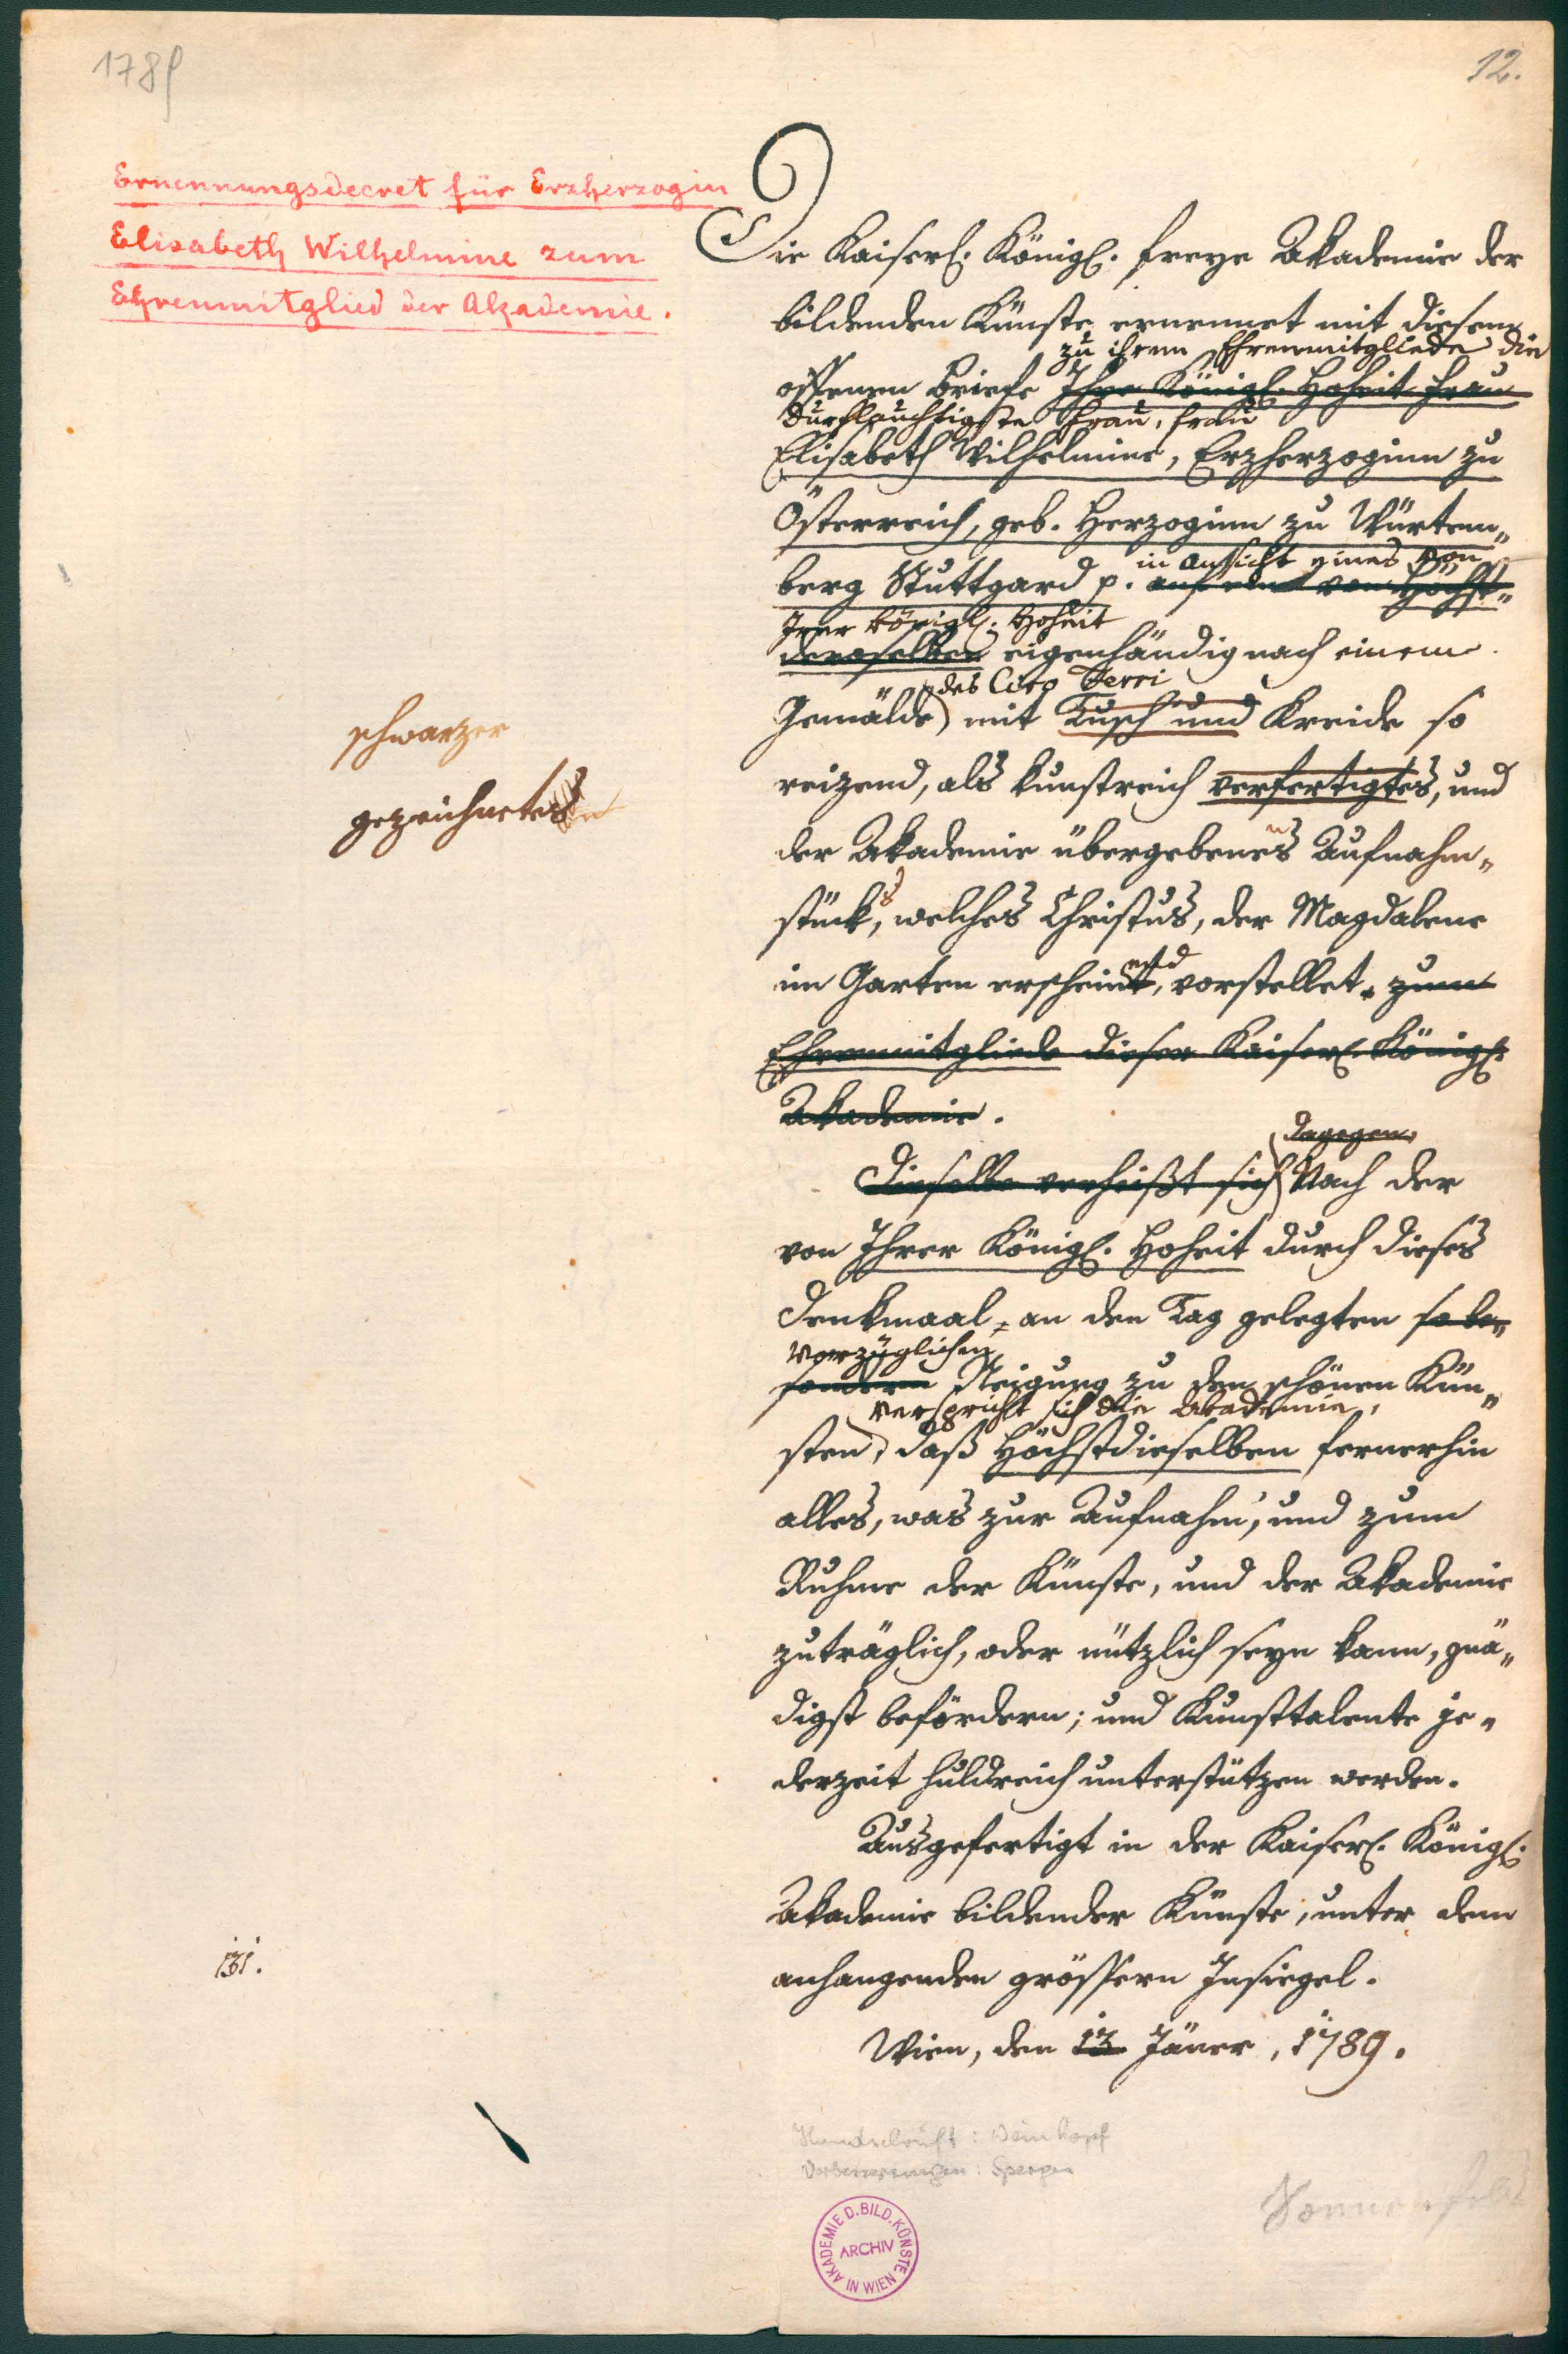 1789
12.
Ernennungsdecret für Erzherzogin
Elisabeth Wilhelmine zum
Ehrenmitglied der Akademie.
Die Kaiserl. Königl. freye Akademie der
bildenden Künste ernennet mit diesem
zu ihrem Ehrenmitgliede die
offenen Briefe Ihre Königl. Hoheit Frau
durchlauchtigste Frau, Frau
Elisabeth Wilhelmine, Erzherzoginn zu
Österreich, geb. Herzoginn zu Würtem„
in Ansicht eines von
berg Stuttgard p. auf ein von Höchst„
Irer königl. Hoheit
deroselben eigenhändig nach einem
des Ciro Ferri
Gemälde mit Tusch und Kreide so
schwarzer
reizend, als kunstreich verfertigtes, und
gezeichneten
der Akademie übergebenes Aufnahm„
stücks, welches Christus, der Magdalene
im Garten erscheinend, vorstellet. zum
Ehrenmitgliede dieser Kaiserl. Königl.
Akademie.
dagegen
Dieselbe verheißt sich Nach der
von Ihrer Königl. Hoheit durch dieses
Denkmaal an den Tag gelegten so be„
vorzüglichen
sondern Neigung zu den schönen Kün„
verspricht sich die Akademie,
sten, daß Höchstdieselben fernerhin
alles, was zur Aufnahm', und zum
Ruhme der Künste, und der Akademie
zuträglich, oder nützlich seyn kann, gnä„
digst befördern; und Kunsttalente je„
derzeit huldreich unterstützen werden.
Ausgefertigt in der Kaiserl. Königl.
Akademie bildender Künste, unter dem
anhangenden grössern Insiegel.
131.
Wien, den 13 Jäner, 1789.
Handschrift: Weinkopf
Verbesserungen: Sperges
Sonnenfels
AKADEMIE D. BILD. KÜNSTE IN WIEN
ARCHIV